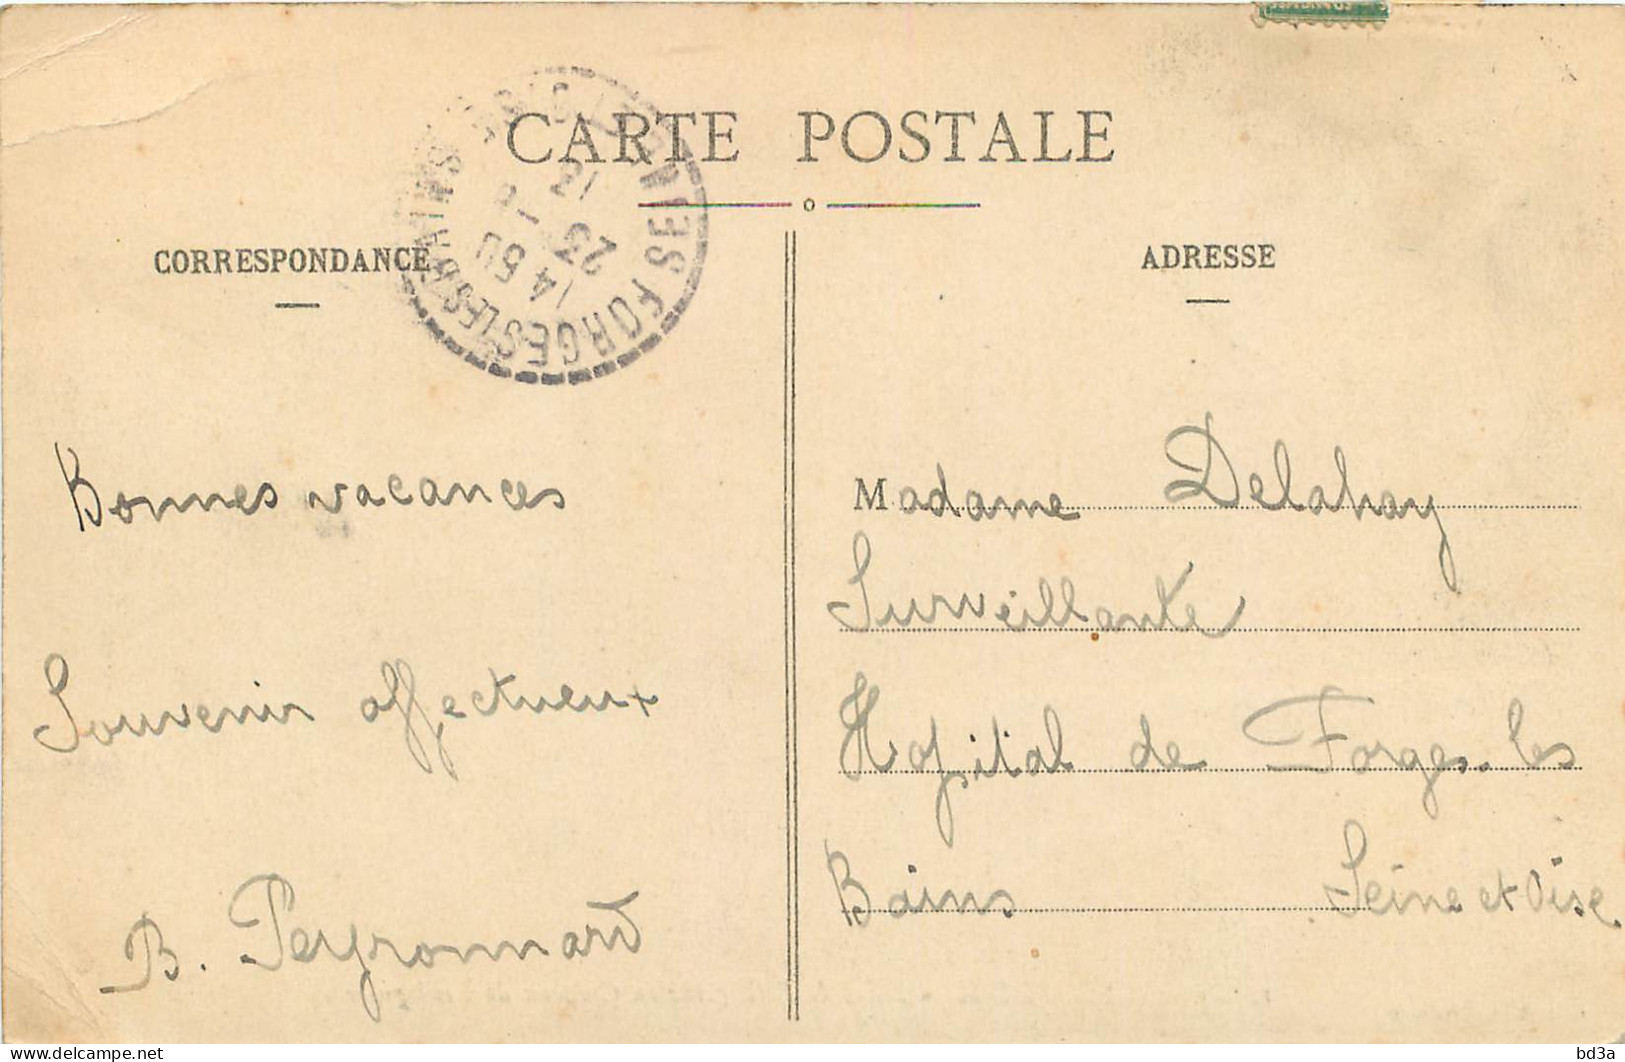 CARTE POSTALE
CORRESPONDANCE
ADRESSE
FORGES LES BAINS
14 50
23
12
Bonnes vacances
Souvenir affectueux
B. Peyronnard
Madame Delahay
Surveillante
Hopital de Forges. les
Bains Seine et Oise.
bd3a